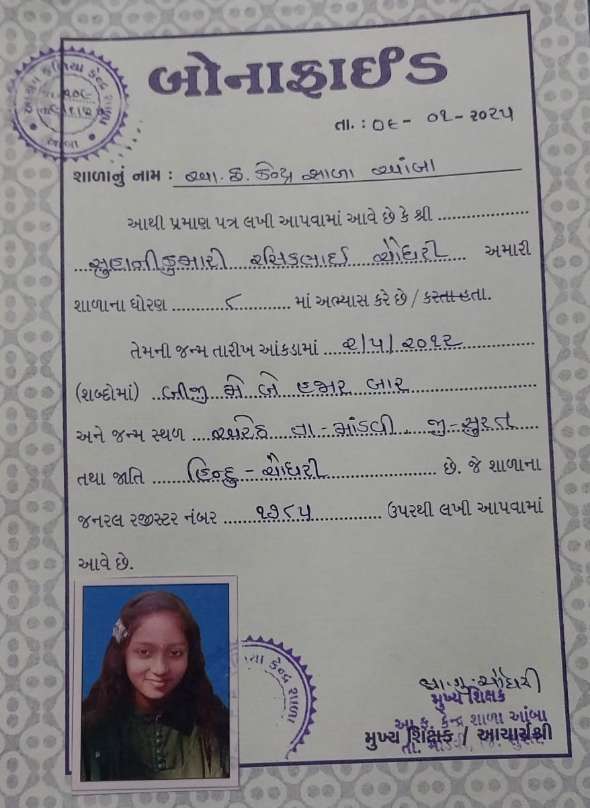 આશ્રમ કળિયા કેન્દ્ર શાળા
આંબા
બોનાફાઈડ
તા. : ૦૯- ૦૧-૨૦૨૫
શાળાનું નામ : આ. ક. કેન્દ્ર શાળા આંબા
આથી પ્રમાણ પત્ર લખી આપવામાં આવે છે કે શ્રી
સુહાનીકુમારી રસિકભાઈ ચૌધરી અમારી
શાળાના ધોરણ ૮ માં અભ્યાસ કરે છે / કરતા હતા.
તેમની જન્મ તારીખ આંકડામાં ૨/૫/૨૦૧૨
(શબ્દોમાં) બીજી મે બે હજાર બાર
અને જન્મ સ્થળ તા-માંડવી જી-સુરત
તથા જાતિ હિન્દુ-ચૌધરી છે. જે શાળાના
જનરલ રજીસ્ટર નંબર ૧૭૮૫ ઉપરથી લખી આપવામાં
આવે છે.
કેન્દ્ર શાળા
ચૌધરી
મુખ્ય શિક્ષક
આ. ક. કેન્દ્ર શાળા આંબા
મુખ્ય શિક્ષક / આચાર્યશ્રી